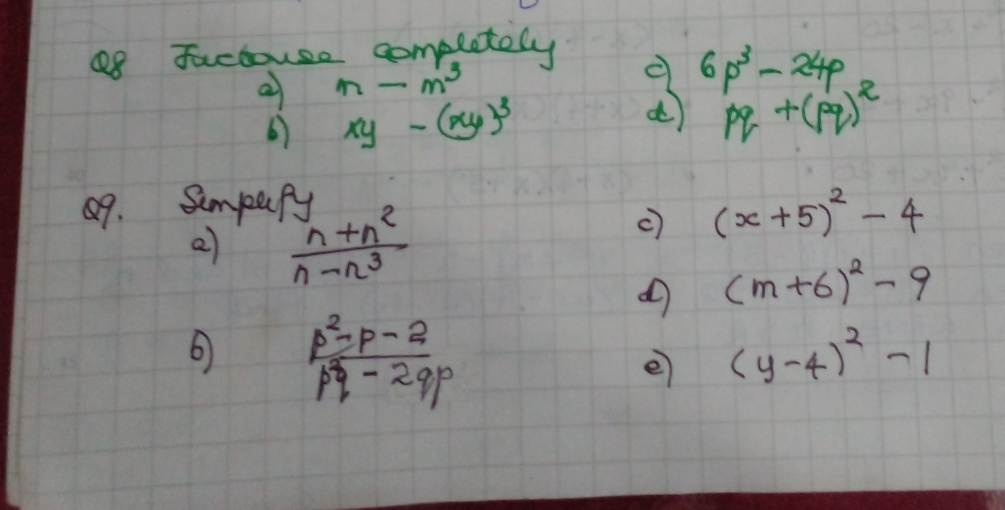 Q8 Factorise completely
a) m - m³
b) xy - (xy)³
c) 6p³ - 24p
d) pq + (pq)²
Q9. Simplify
a) n + n² / n - n³
b) p² - p - 2 / p²q - 2qp
c) (x + 5)² - 4
d) (m + 6)² - 9
e) (y - 4)² - 1